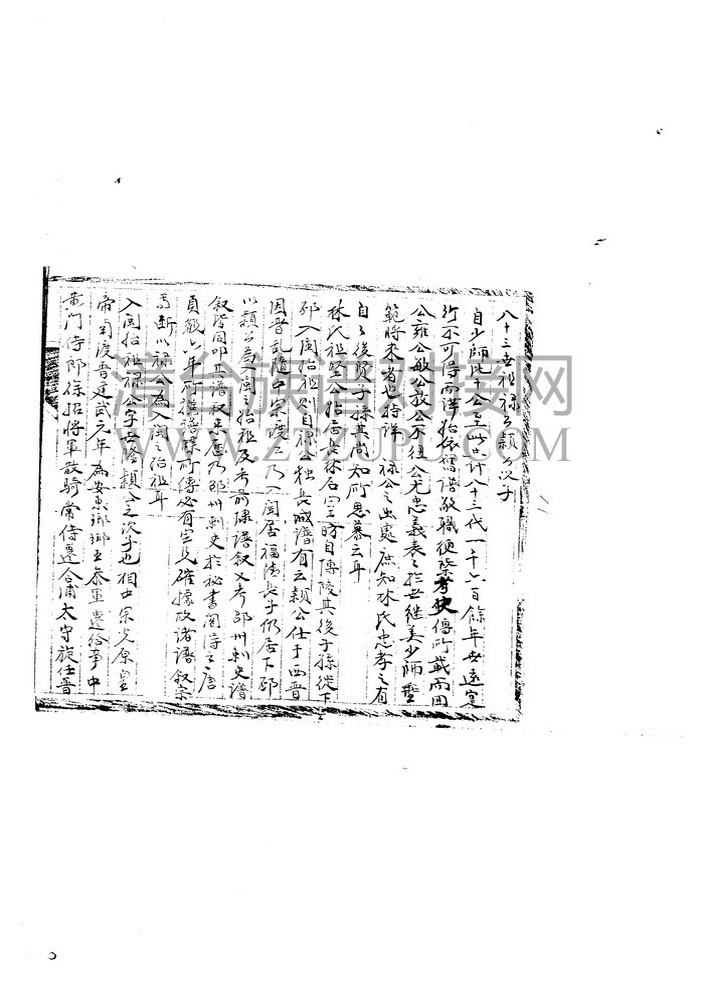 八十三世祖祿公穎公次子
自少師比干公至此已計八十三代一千六百餘年世遠寔
不可得而詳始依舊譜敬職便 考史傳所載而因
公雍公敏公放公不往公尤忠義表之於世継美少師聖
範將來者也特詳 祿公之出處庶知林氏忠孝之有
自之後賢子孫其尚知所思慕云耳
林氏祖 公始居長林石室 自傳陵其後子孫從下
邳入閩始祖則自祿公独長城譜有云穎公仕于西晉
因晉乱隨中宗度江乃入閩居福清長子仍居下邳
以穎公為入閩之始祖及考前隸譜叙又考邵州刺史譜
叙皆同叩其譜叙來歴乃邵州刺史於秘書閣得之唐
貞觀六年所 譜 所傳必有定見確據故諸譜叙宗
焉断以祿公為入閩之始祖耳
入閩始祖祿公字世蔭穎公之次子也相中宗 元皇
帝南渡晉建武元年為安東瑯琊王參軍遷給事中
黃門侍郎 招將軍散騎常侍遷合浦太守旋任晉
漳台族譜对接网
WWW.ZTZUPU.COM